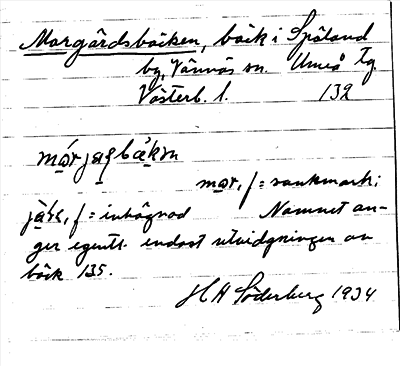 Morgårdsbäcken, bäck i Spöland
by, Vännäs sn. Umeå tg.
Västerb. l. 132
mo̱r, f = sankmark;
f = inhägnad Namnet an-
ger egentl. endast utvidgningen av
bäck 135.
H H Söderberg 1934